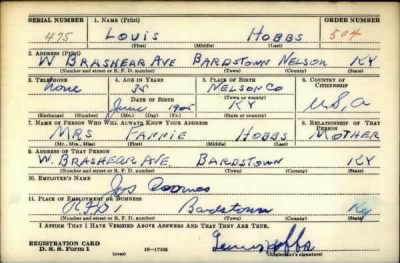 SERIAL NUMBER 1. NAME (Print) ORDER NUMBER
475 LOUIS HOBBS 504
(First) (Middle) (Last)
2. ADDRESS (Print)
W BRASHEAR AVE BARDSTOWN NELSON KY
(Number and street or R. F. D. number) (Town) (County) (State)
3. TELEPHONE 4. AGE IN YEARS 5. PLACE OF BIRTH 6. COUNTRY OF CITIZENSHIP
none 35 NELSON CO
DATE OF BIRTH (Town or county)
June 1905 KY U.S.A
(Exchange) (Number) (Mo.) (Day) (Yr.) (State or country)
7. NAME OF PERSON WHO WILL ALWAYS KNOW YOUR ADDRESS 8. RELATIONSHIP OF THAT PERSON
MRS FANNIE HOBBS MOTHER
(Mr., Mrs., Miss) (First) (Middle) (Last)
9. ADDRESS OF THAT PERSON
W. BRASHEAR AVE BARDSTOWN KY
(Number and street or R. F. D. number) (Town) (County) (State)
10. EMPLOYER'S NAME
Jos
11. PLACE OF EMPLOYMENT OR BUSINESS
RFD 1 Bardstown Ky
(Number and street or R. F. D. number) (Town) (County) (State)
I AFFIRM THAT I HAVE VERIFIED ABOVE ANSWERS AND THAT THEY ARE TRUE.
REGISTRATION CARD
D. S. S. Form 1 16-17105 Hobbs
(Registrant's signature)